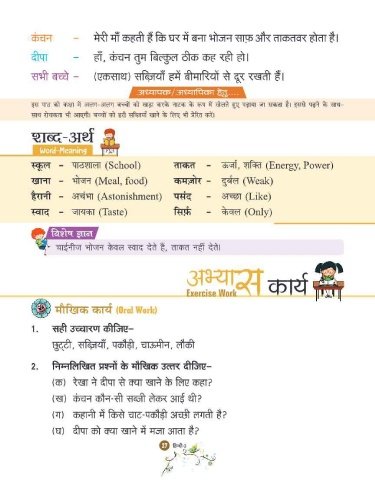 कंचन – मेरी माँ कहती हैं कि घर में बना भोजन साफ़ और ताकतवर होता है।
दीपा – हाँ, कंचन तुम बिल्कुल ठीक कह रही हो।
सभी बच्चे – (एकसाथ) सब्ज़ियाँ हमें बीमारियों से दूर रखती हैं।
अध्यापक/अध्यापिका हेतु....
इस पाठ को कक्षा में अलग-अलग बच्चों को खड़ा करके नाटक के रूप में खेलते हुए पढ़ाया जा सकता है। इससे पढ़ने के साथ-
साथ रोचकता भी आएगी। बच्चों को हरी सब्ज़ियाँ खाने के लिए भी प्रेरित करें।
शब्द-अर्थ
Word-Meaning
स्कूल – पाठशाला (School) ताकत – ऊर्जा, शक्ति (Energy, Power)
खाना – भोजन (Meal, food) कमज़ोर – दुर्बल (Weak)
हैरानी – अचंभा (Astonishment) पसंद – अच्छा (Like)
स्वाद – जायका (Taste) सिर्फ़ – केवल (Only)
विशेष ज्ञान
– चाईनीज भोजन केवल स्वाद देते हैं, ताकत नहीं देते।
अभ्यास कार्य
Exercise Work
मौखिक कार्य (Oral Work)
1. सही उच्चारण कीजिए–
छुट्टी, सब्ज़ियाँ, पकौड़ी, चाऊमीन, लौकी
2. निम्नलिखित प्रश्नों के मौखिक उत्तर दीजिए–
(क) रेखा ने दीपा से क्या खाने के लिए कहा?
(ख) कंचन कौन-सी सब्ज़ी लेकर आई थी?
(ग) कहानी में किसे चाट-पकौड़ी अच्छी लगती है?
(घ) दीपा को क्या खाने में मज़ा आता है?
27 हिन्दी-3